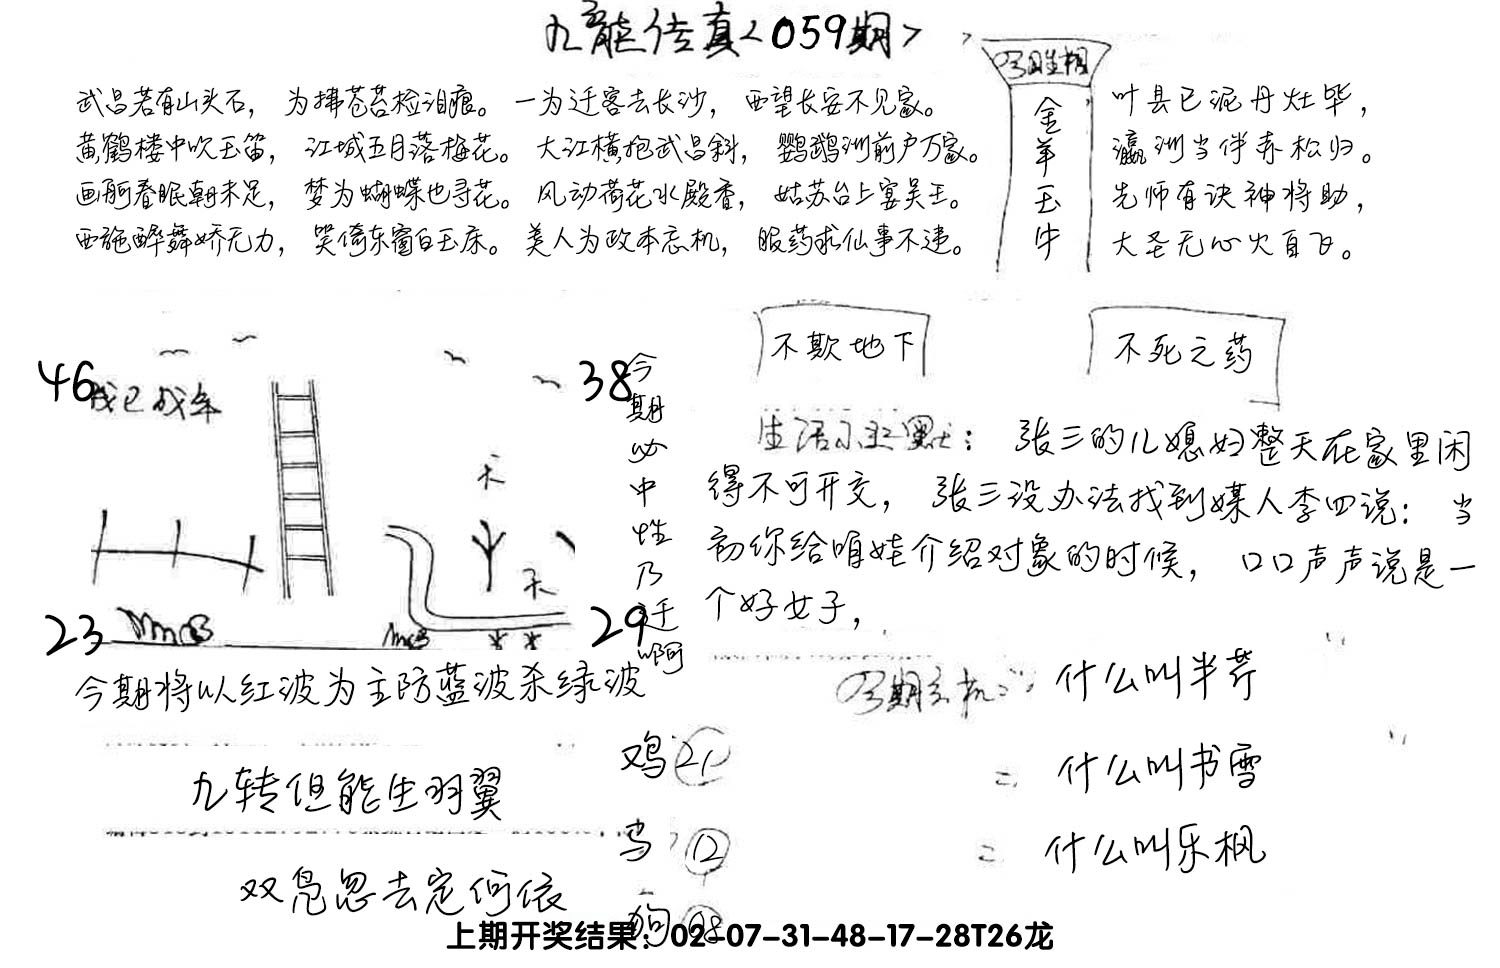 九龙传真<059期>
武昌若有山头石，为拂苍苔检泪痕。一为迁客去长沙，西望长安不见家。
黄鹤楼中吹玉笛，江城五月落梅花。大江横抱武昌斜，鹦鹉洲前户万家。
画舸春眠朝未足，梦为蝴蝶也寻花。风动荷花水殿香，姑苏台上宴吴王。
西施醉舞娇无力，笑倚东窗白玉床。美人为政本忘机，服药求仙事不违。
金羊玉牛
叶县已泥丹灶毕，
瀛洲当伴赤松归。
先师有诀神将助，
大圣无心火自飞。
46
38
23
29
今期必中性乃迁啊
今期将以红波为主防蓝波杀绿波
九转但能生羽翼
双凫忽去定何依
鸡 21
鸟 12
狗 08
不欺地下
不死之药
张三的儿媳妇整天在家里闲
得不可开交，张三没办法找到媒人李四说：当
初你给咱娃介绍对象的时候，口口声声说是一
个好女子，
什么叫半芹
什么叫书雪
什么叫乐枫
上期开奖结果：02-07-31-48-17-28T26龙